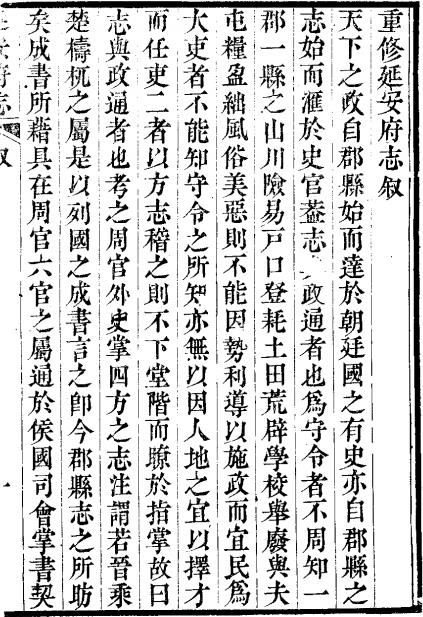 重修延安府志叙
天下之政自郡縣始而達於朝廷國之有史亦自郡縣之
志始而滙於史官葢志政通者也爲守令者不周知一
郡一縣之山川險易戸口登耗土田荒辟學校舉廢與夫
屯糧盈絀風俗美惡則不能因勢利導以施政而宜民爲
大吏者不能知守令之所知亦無以因人地之宜以擇才
而任吏二者以方志稽之則不下堂階而瞭於指掌故曰
志與政通者也考之周官外史掌四方之志注謂若晉乘
楚檮杌之屬是以列國之成書言之卽今郡縣志之所昉
矣成書所藉具在周官六官之屬通於侯國司會掌書契
府志
叙
一